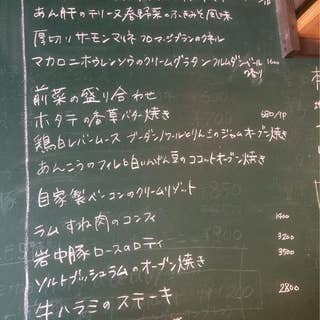 あん肝のテリーヌ 春野菜のふきみそ風味
厚切りサーモンマリネ フロマージュブランのクネル
マカロニホウレンソウのクリームグラタン フルムダンベール
前菜の盛り合わせ
ホタテの香草バター焼き 680/1P
鶏白レバームース ブーダンノワールとりんごのジャムオーブン焼き
あんこうのフィレと白いんげん豆のココットオーブン焼き
自家製ベーコンのクリームリゾット
ラムすね肉のコンフィ 1400
岩中豚ロースのロティ 3200
ソルトブッシュラムのオーブン焼き 3500
牛ハラミのステーキ 2800